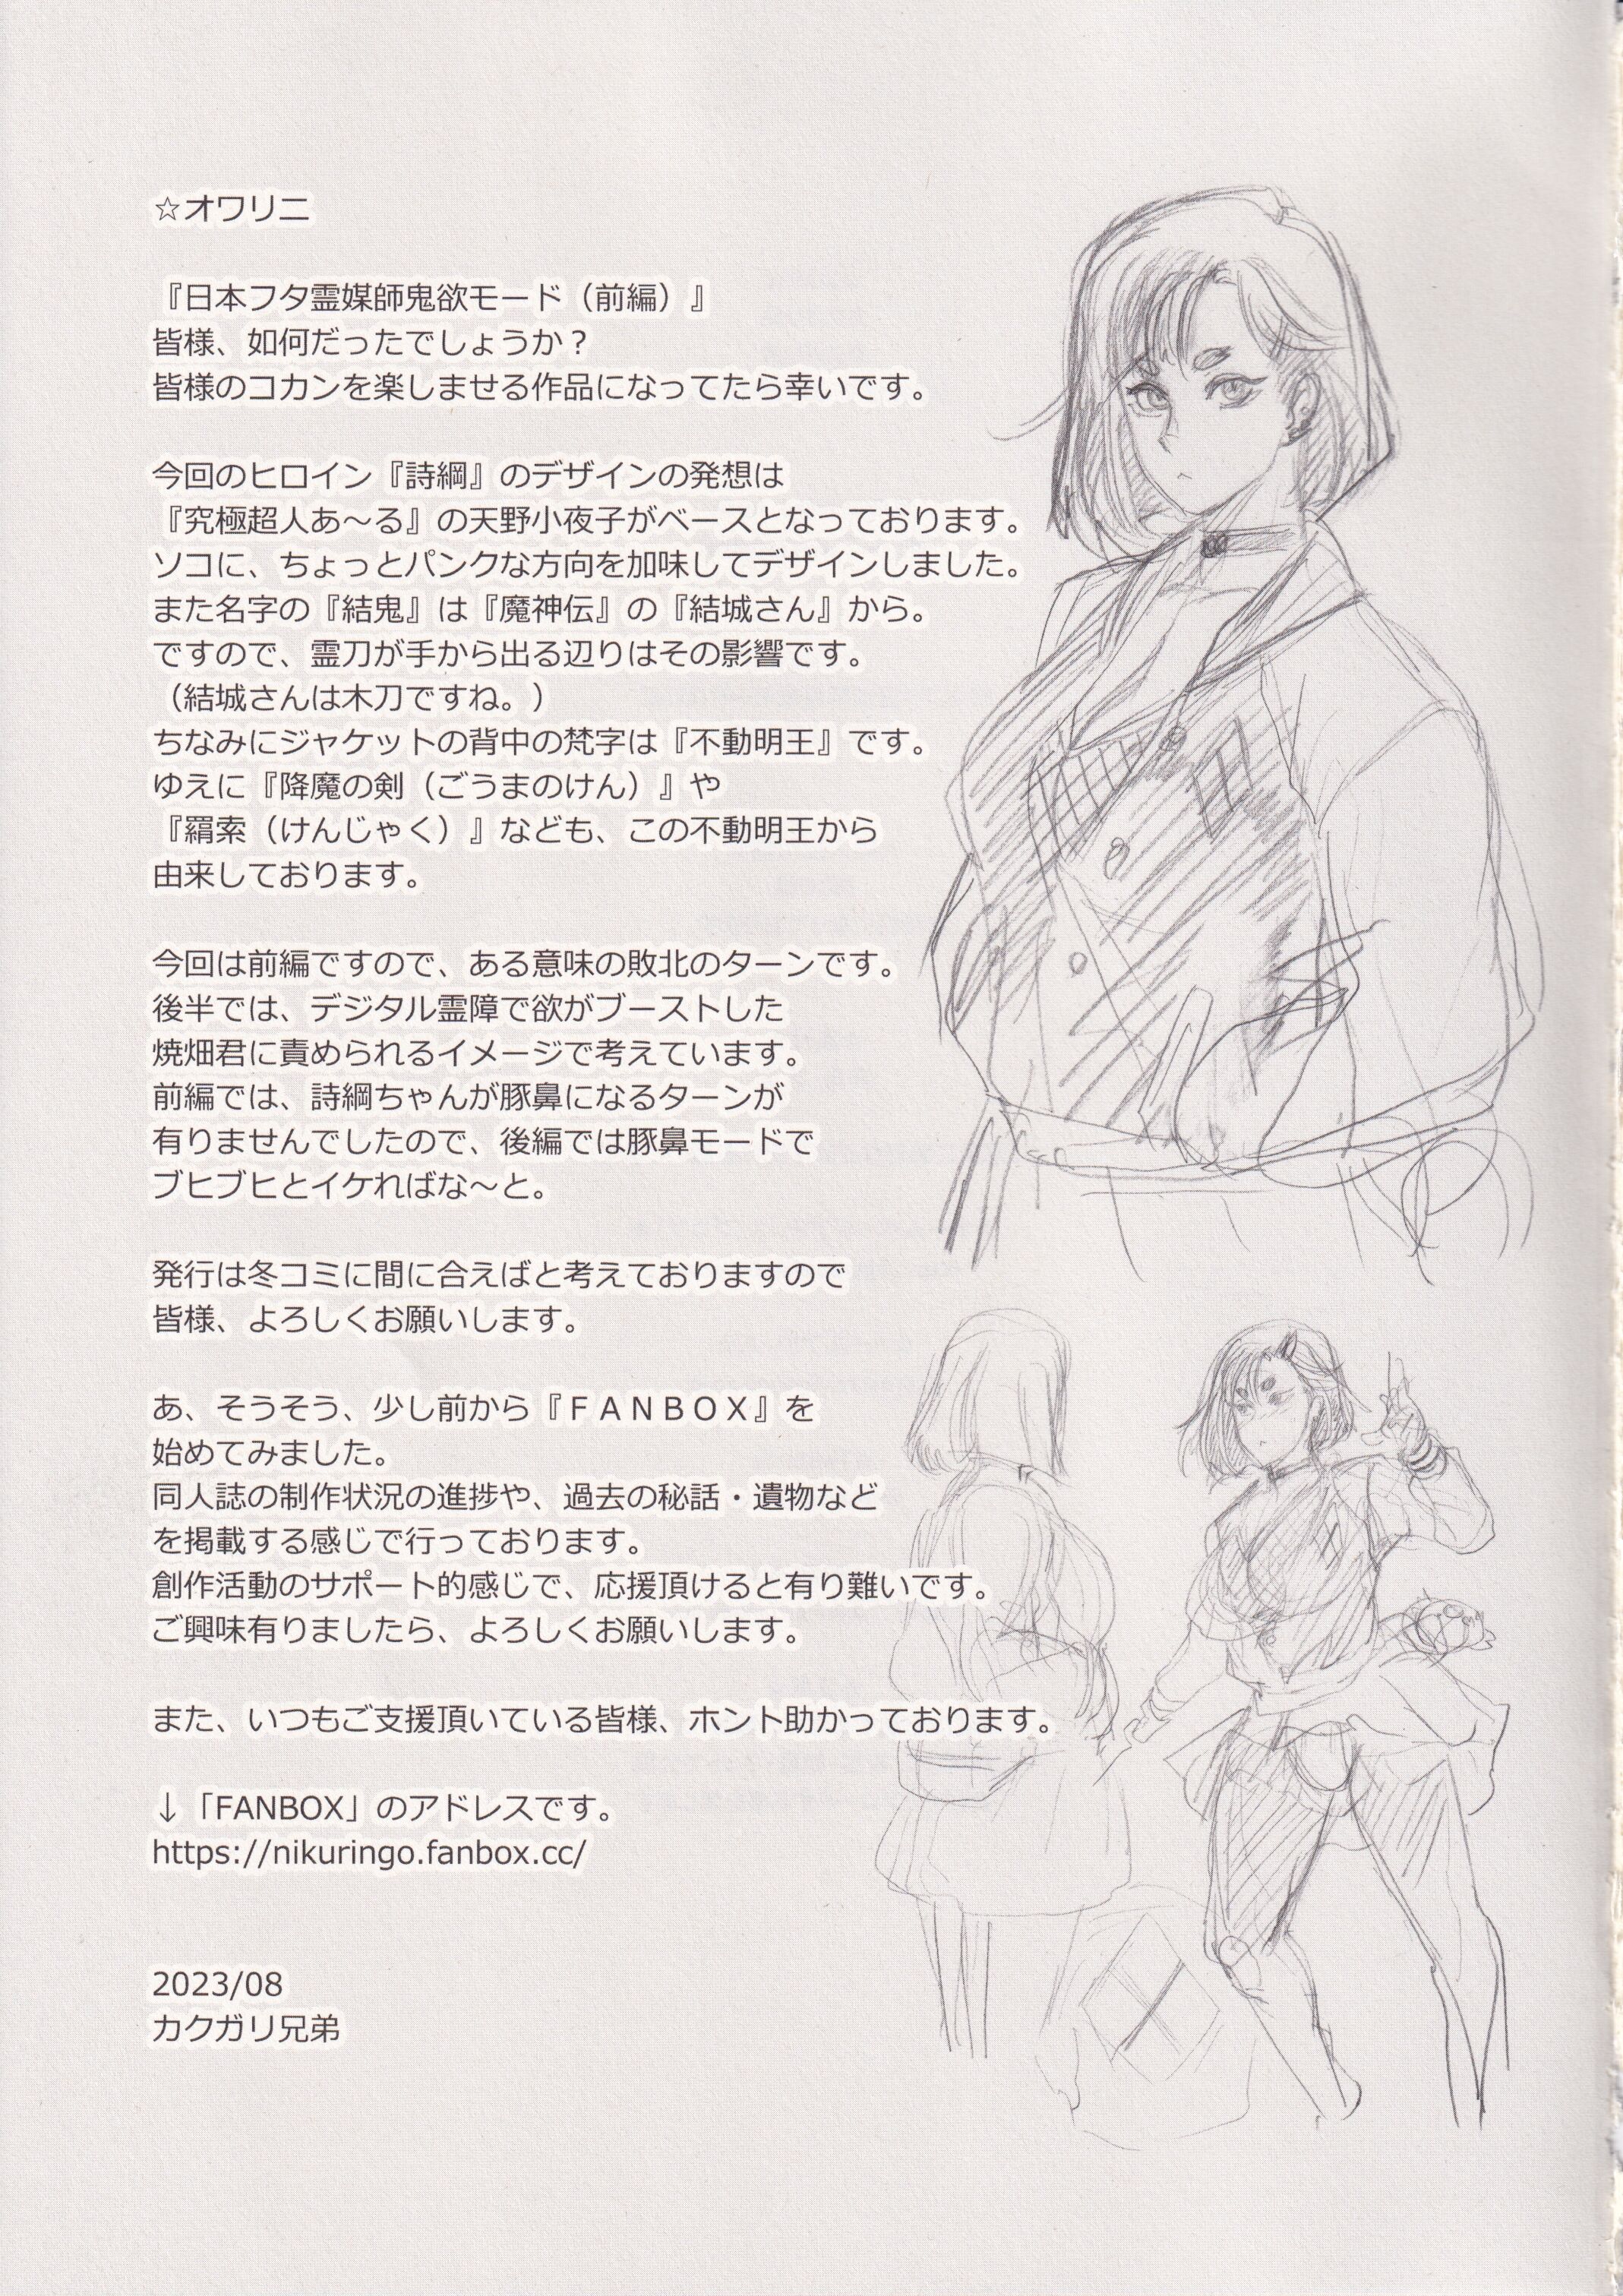 ☆オワリニ
『日本フタ霊媒師鬼欲モード（前編）』
皆様、如何だったでしょうか？
皆様のコカンを楽しませる作品になってたら幸いです。
今回のヒロイン『詩綱』のデザインの発想は
『究極超人あ～る』の天野小夜子がベースとなっております。
ソコに、ちょっとパンクな方向を加味してデザインしました。
また名字の『結鬼』は『魔神伝』の『結城さん』から。
ですので、霊刀が手から出る辺りはその影響です。
（結城さんは木刀ですね。）
ちなみにジャケットの背中の梵字は『不動明王』です。
ゆえに『降魔の剣（ごうまのけん）』や
『羂索（けんじゃく）』なども、この不動明王から
由来しております。
今回は前編ですので、ある意味の敗北のターンです。
後半では、デジタル霊障で欲がブーストした
焼畑君に責められるイメージで考えています。
前編では、詩綱ちゃんが豚鼻になるターンが
有りませんでしたので、後編では豚鼻モードで
ブヒブヒとイケればな～と。
発行は冬コミに間に合えばと考えておりますので
皆様、よろしくお願いします。
あ、そうそう、少し前から『ＦＡＮＢＯＸ』を
始めてみました。
同人誌の制作状況の進捗や、過去の秘話・遺物など
を掲載する感じで行っております。
創作活動のサポート的感じで、応援頂けると有り難いです。
ご興味有りましたら、よろしくお願いします。
また、いつもご支援頂いている皆様、ホント助かっております。
↓「FANBOX」のアドレスです。
https://nikuringo.fanbox.cc/
2023/08
カクガリ兄弟